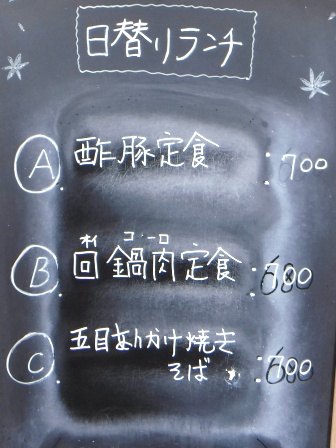 日替りランチ
A 酢豚定食 : 700
ホイ コーロ
B 回鍋肉定食 : 700
C 五目あんかけ焼き
そば : 700